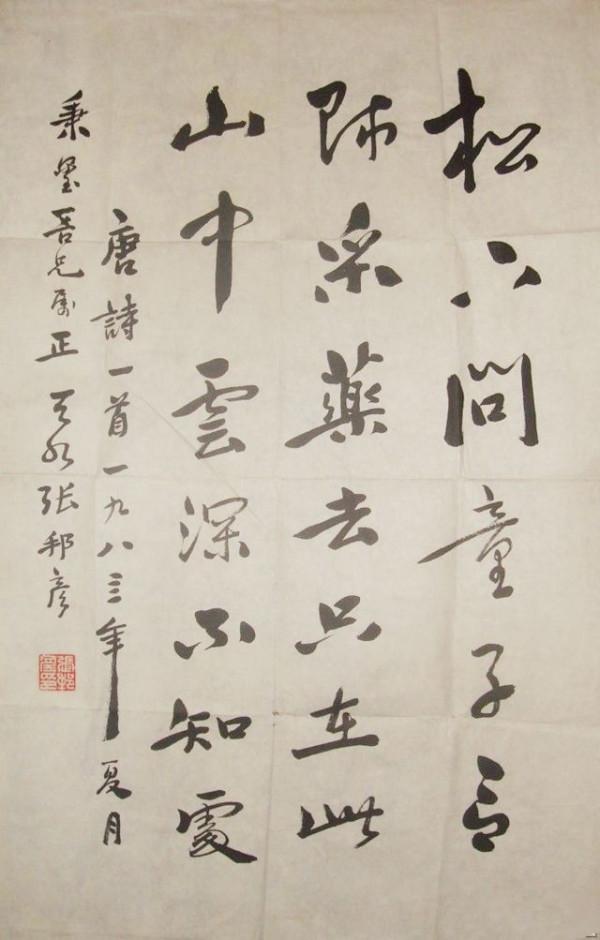 松下問童子言
师采藥去只在此
山中雲深不知處
唐詩一首一九八三年夏月
秉吾兄属正天水张邦彦